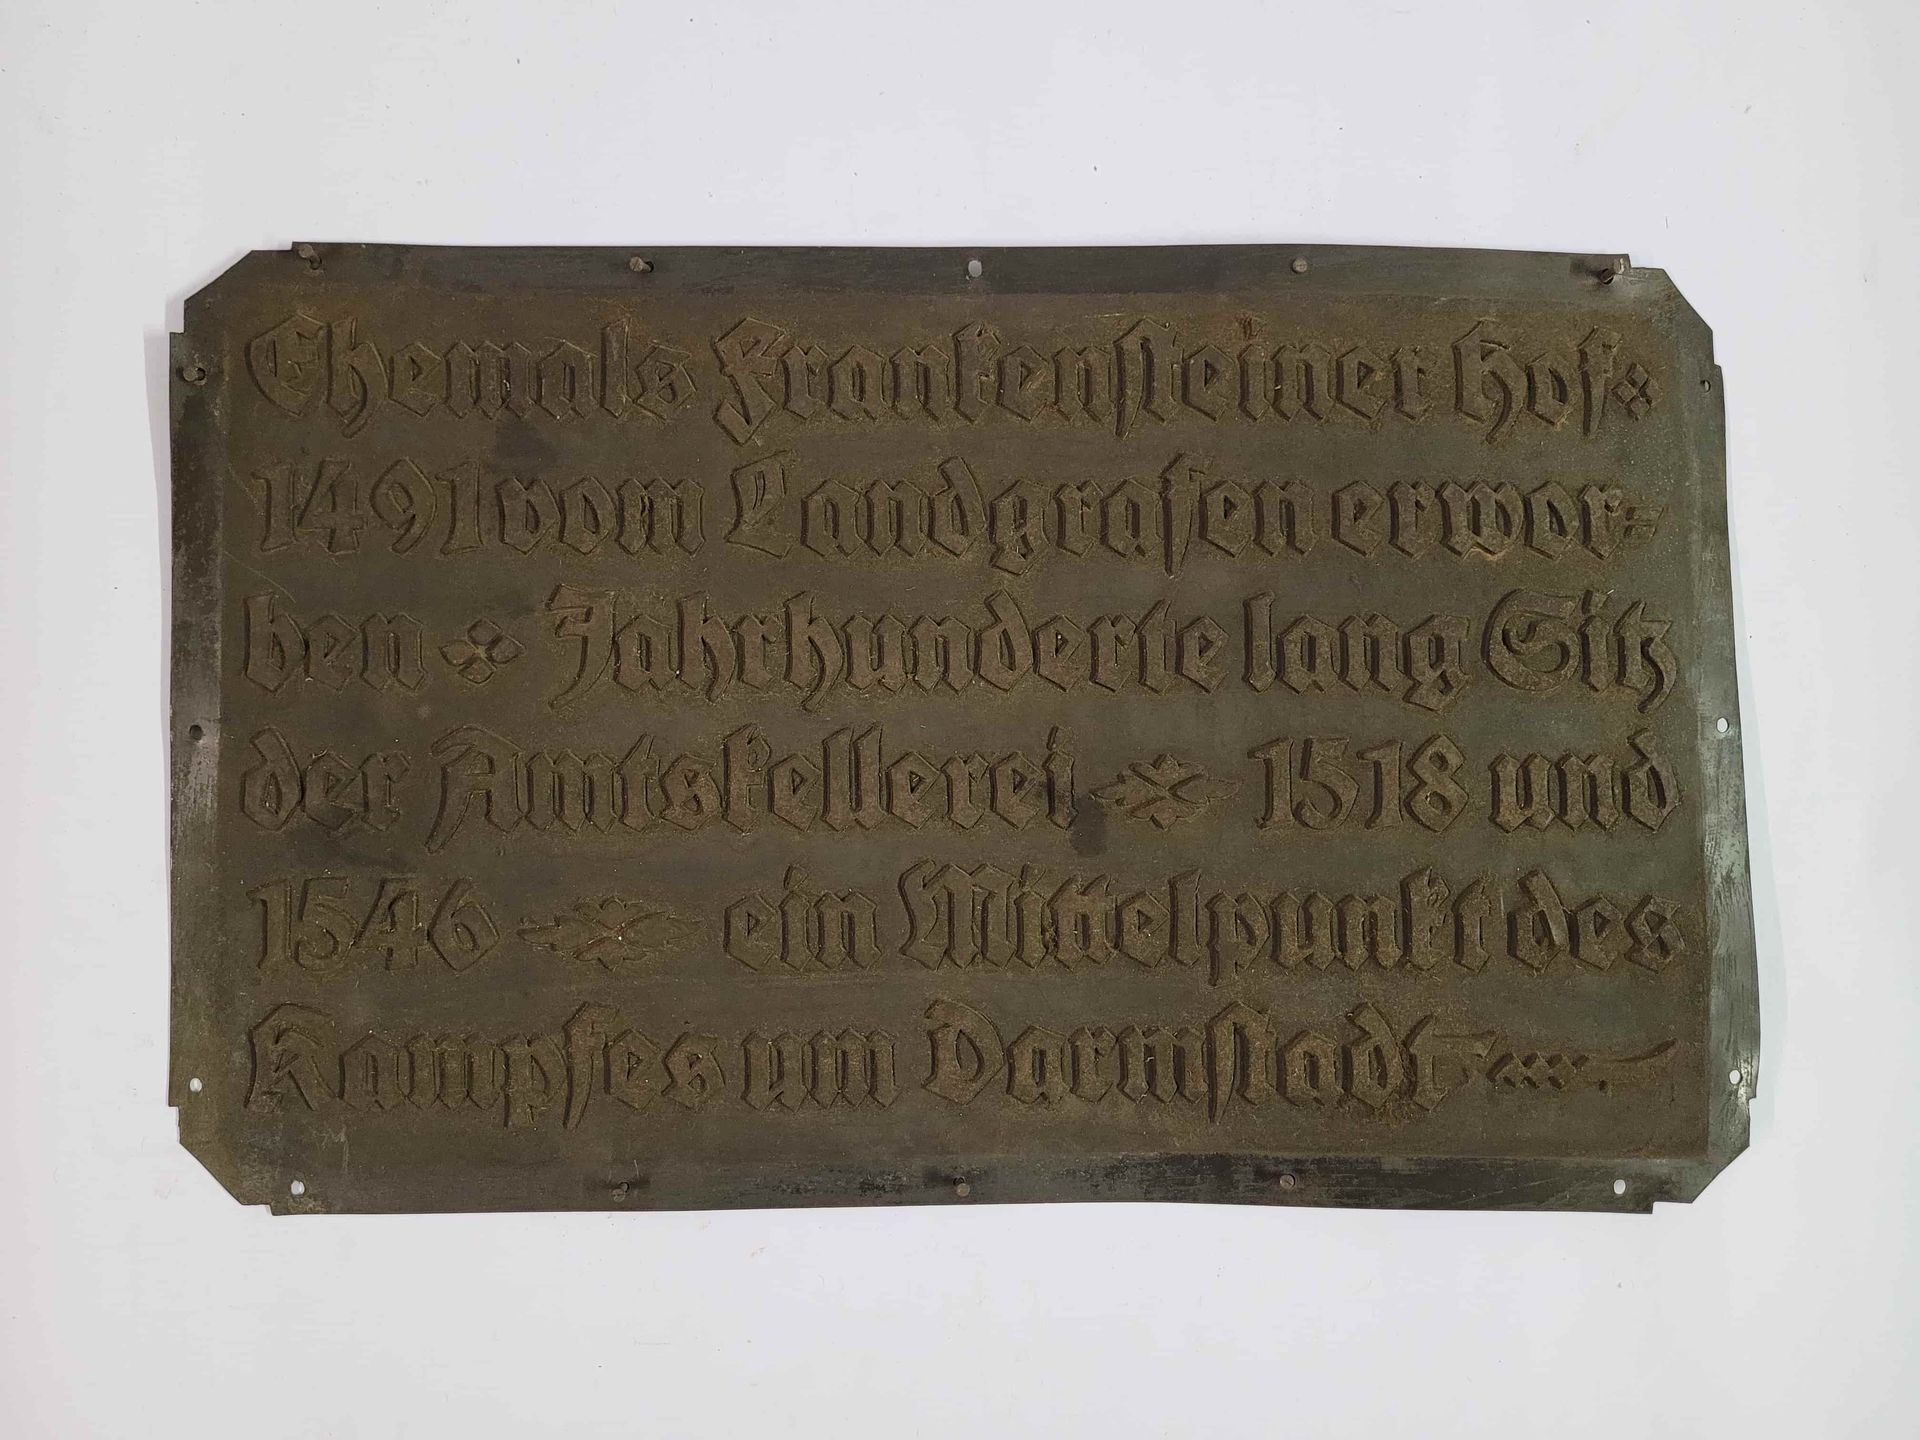 Ehemals Frankensteiner Hof
1491 vom Landgrafen erwor=
ben Jahrhunderte lang Sitz
der Amtskellerei 1518 und
1546 ein Mittelpunkt des
Kampfes um Darmstadt